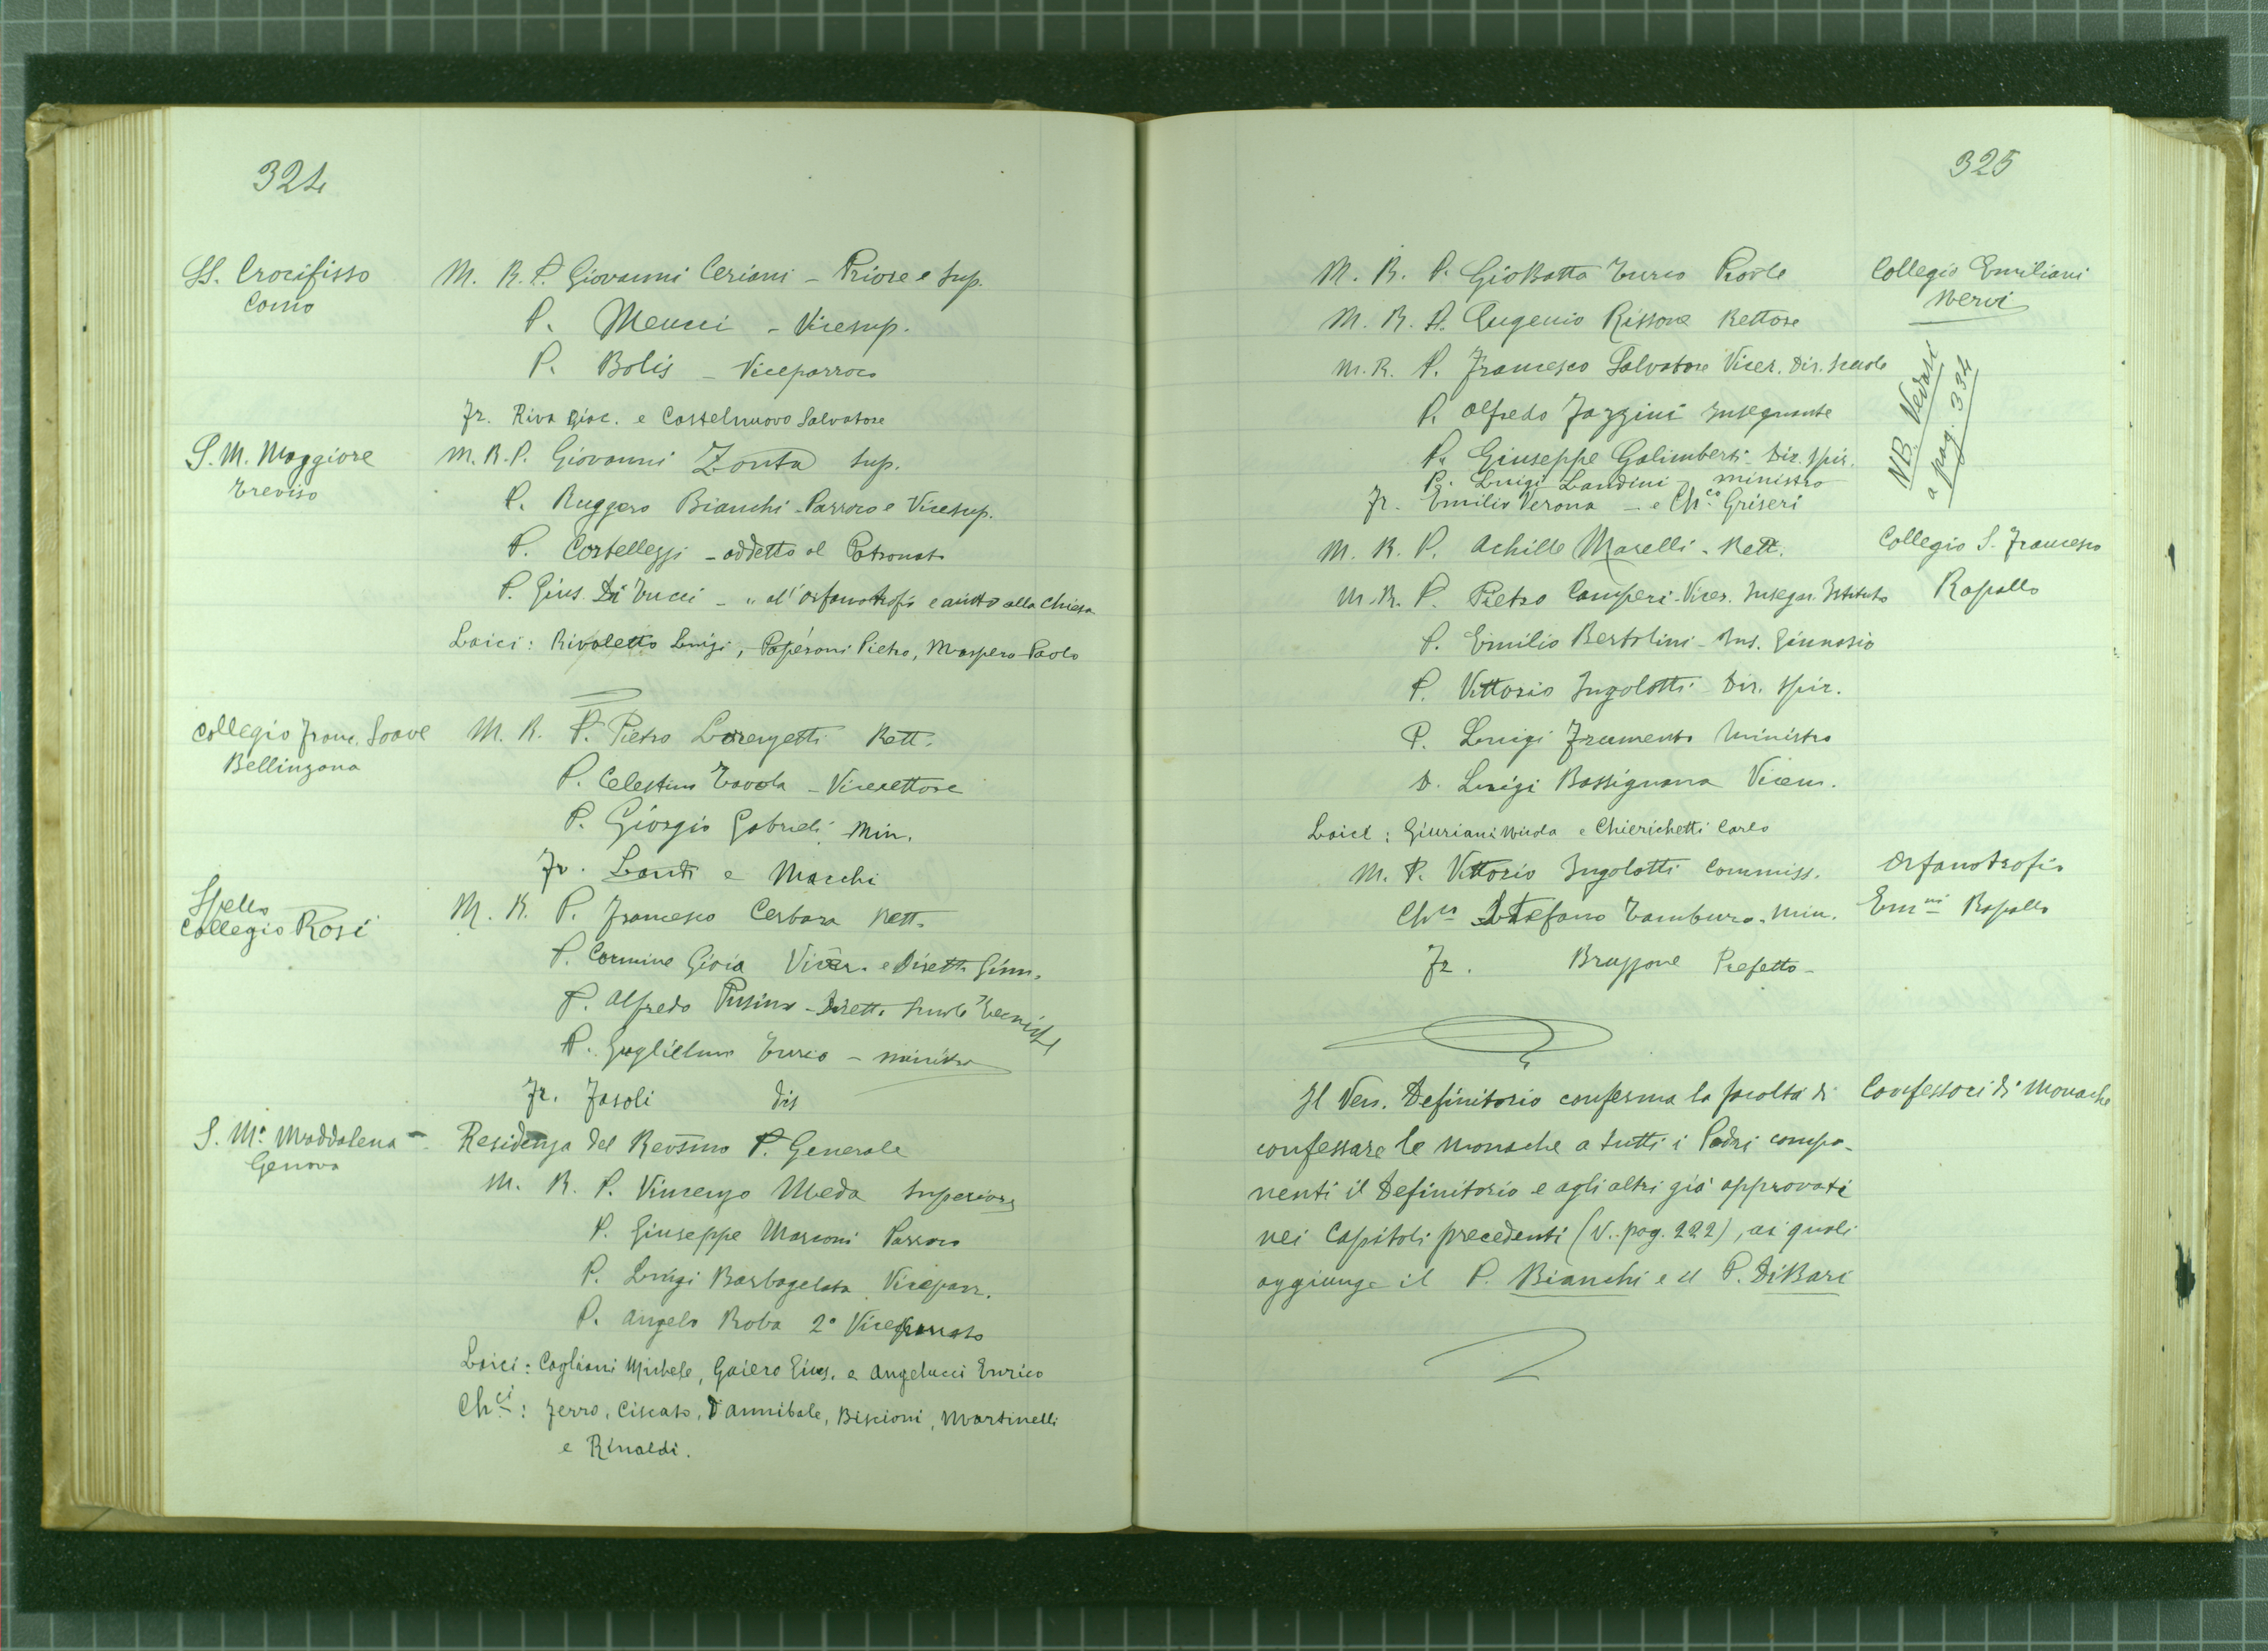 324
SS. Crocifisso
Como
M. R. P. Giovanni Ceriani - Priore e Sup.
P. Meucci - Vicesup.
P. Bolis - Viceparroco
Fr. Riva Giac. e Castelnuovo Salvatore
S. M. Maggiore
Treviso
M. R. P. Giovanni Zonta Sup.
P. Ruggero Bianchi - Parroco e Vicesup.
P. Cortellezzi - addetto al Patronato
P. Gius. Di Tucci - " all'orfanotrofio e aiuto alla Chiesa
Laici: Rivaletto Luigi, Paperoni Pietro, Maspero Paolo
Collegio Franc. Soave
Bellinzona
M. R. P. Pietro Lorenzetti Rett.
P. Celestino Tavola - Vicerettore
P. Giorgio Gabrieli Min.
Fr. Landi e Marchi
Spello
Collegio Rosi
M. R. P. Francesco Cerbara Rett.
P. Carmine Gioia Vicer. e Dirett. Ginn.
P. Alfredo Pusino - Dirett. Scuole Tecniche
P. Guglielmo Turco - ministro
Fr. Fasoli
S. Mª Maddalena -
Genova
Residenza del Rev̄smo P. Generale
M. R. P. Vincenzo Meda Superiore
P. Giuseppe Marconi Parroco
P. Luigi Barbagelata Viceparr.
P. Angelo Roba 2º Viceparroco
Laici: Cagliani Michele, Gaiero Gius. e Angelucci Enrico
Chci: Ferro, Ciscato, D'Annibale, Biscioni, Martinelli
e Rinaldi.
325
M. R. P. GioBatta Turco Prov̄le
Collegio Emiliani
Nervi
M. R. P. Eugenio Rissone Rettore
M. R. P. Francesco Salvatore Vicer. Dir. Scuole
P. Alfredo Fazzini Insegnante
P. Giuseppe Galimberti - Dir. Spir.
P. Luigi Landini - ministro
Fr. Emilio Verona - e Chco Griseri
NB. Vedasi
a pag. 334
M. R. P. Achille Marelli - Rett.
Collegio S. Francesco
Rapallo
M. R. P. Pietro Camperi - Vicer. Insegn. Istituto
P. Emilio Bertolini - Ins. Ginnasio
P. Vittorio Ingolotti Dir. Spir.
P. Luigi Frumento Ministro
D. Luigi Bassignana Vicem.
Laici: Giuriani Nicola e Chierichetti Carlo
M. P. Vittorio Ingolotti Commiss.
Orfanotrofio
Emni Rapallo
Chco Stefano Tamburo - Min.
Fr. Bruzzone Prefetto -
Il Ven. Definitorio conferma la facoltà di
Confessori di Monache
confessare le Monache a tutti i Padri compo-
nenti il Definitorio e agli altri già approvati
nei Capitoli precedenti (V. pag. 222), ai quali
aggiunge il P. Bianchi e il P. DiBari